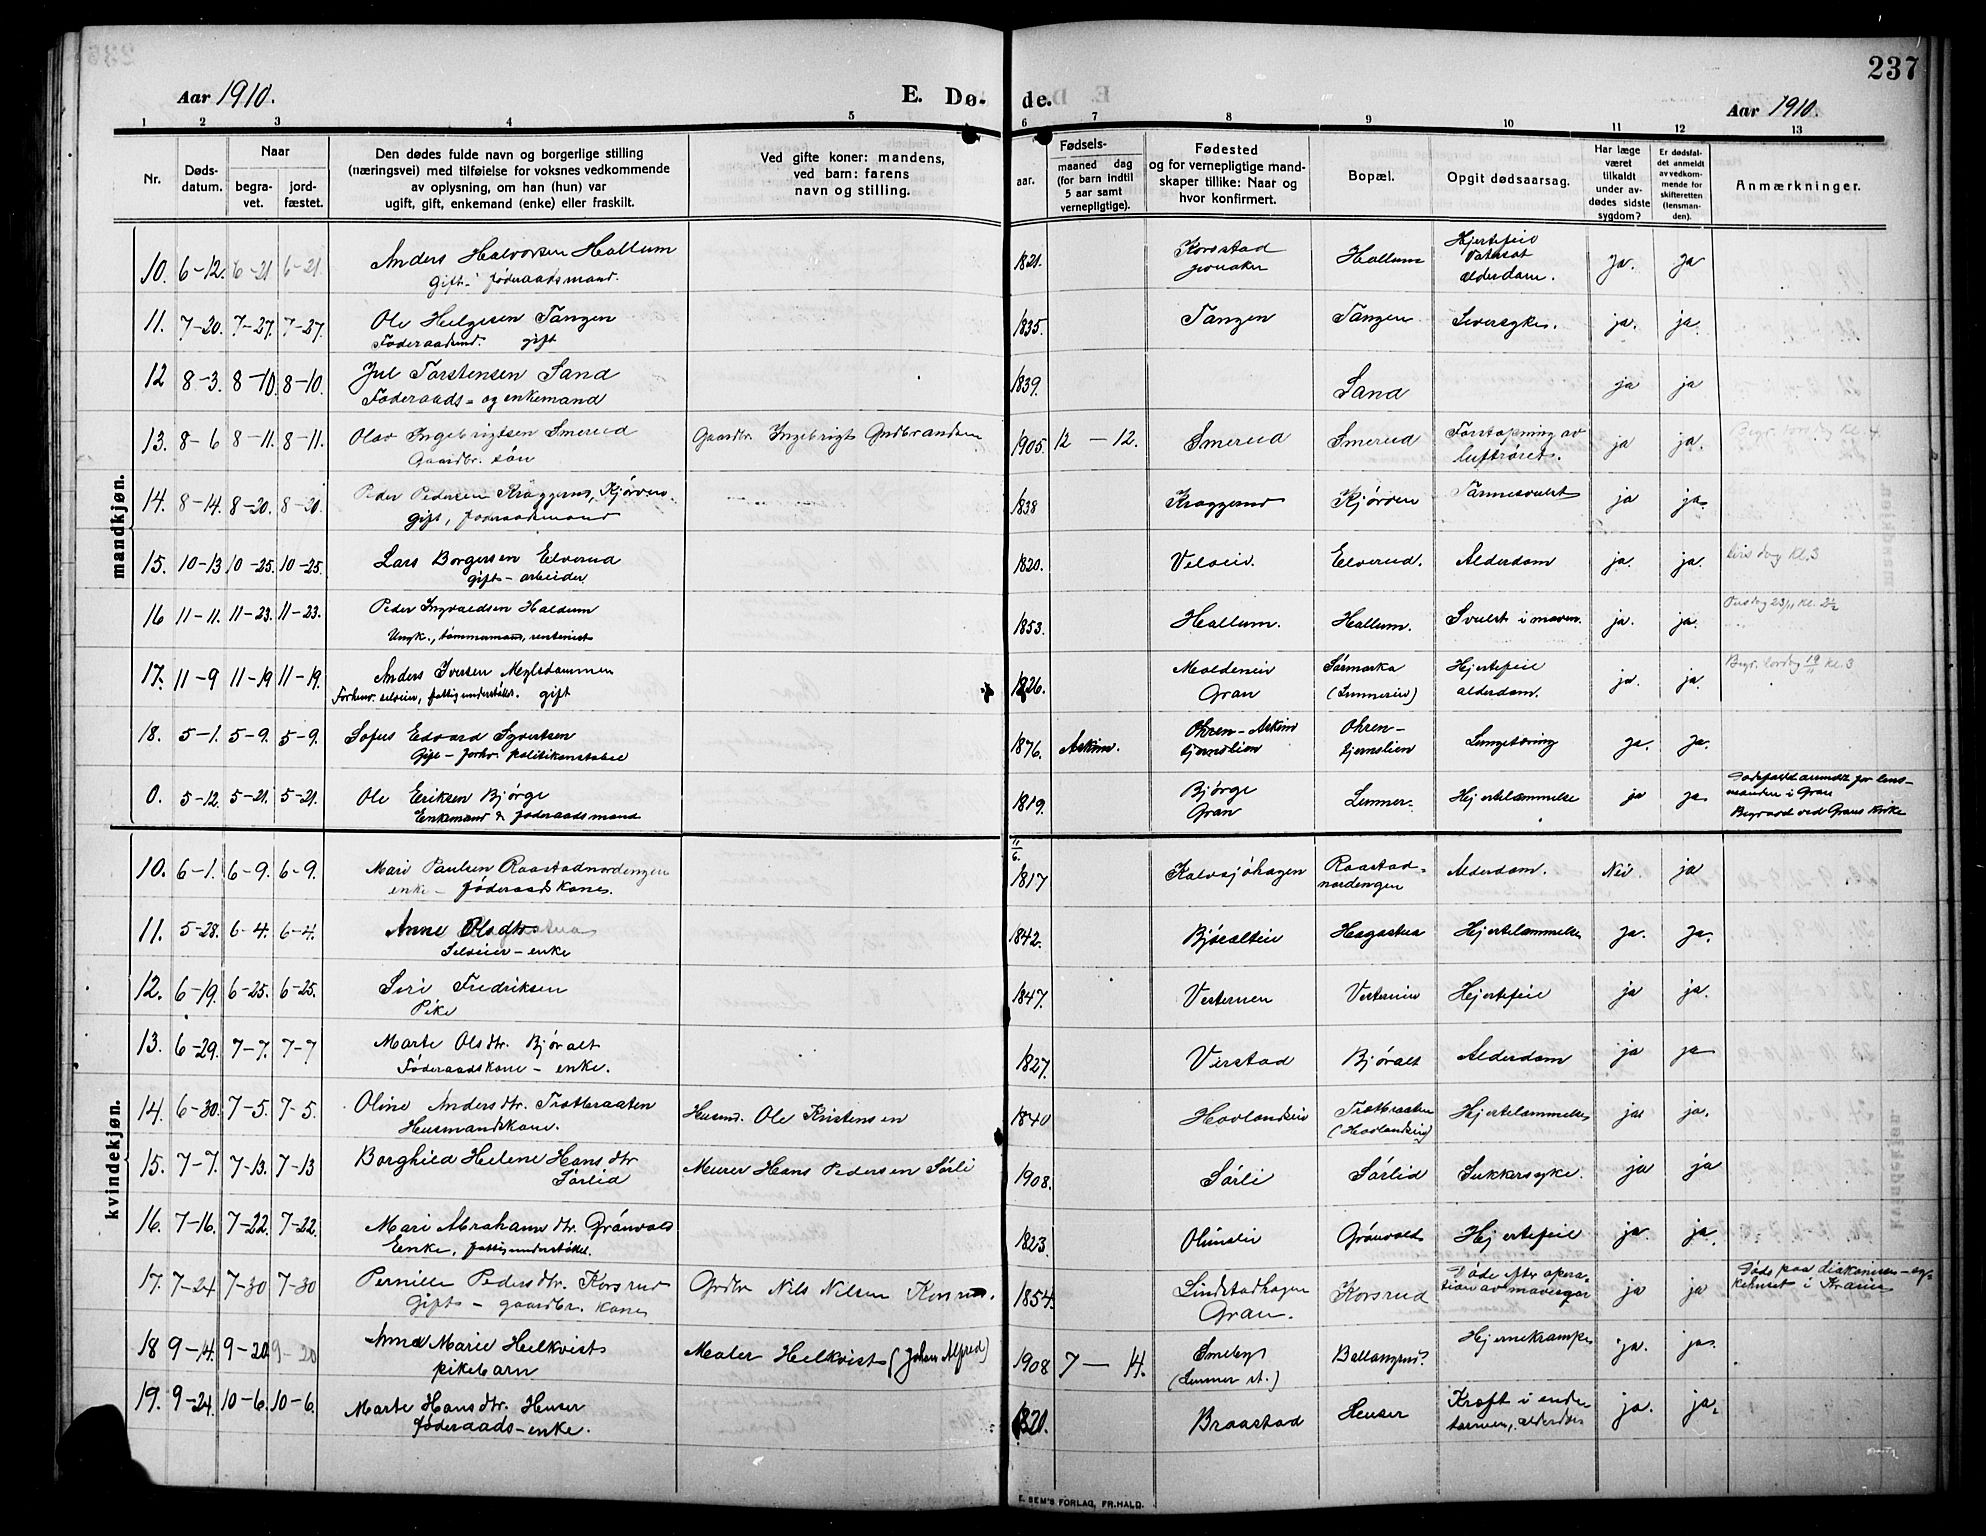 237
Aar 1910. E. Dø- de. Aar 1910.
1 2 3 4 5 6 7 8 9 10 11 12 13
Nr. Døds-datum. Naar begra-vet. jord-fæstet. Den dødes fulde navn og borgerlige stilling (næringsvei) med tilføielse for voksnes vedkommende av oplysning, om han (hun) var ugift, gift, enkemand (enke) eller fraskilt. Ved gifte koner: mandens, ved barn: farens navn og stilling. aar. Fødsels- maaned dag (for barn indtil 5 aar samt vernepligtige). Fødested og for vernepligtige mand-skaper tillike: Naar og hvor konfirmert. Bopæl. Opgit dødsaarsag. Har læge været tilkaldt under av-dødes sidste sygdom? Er dødsfal-det anmeldt av vedkom-mende for skifteretten (lensman-den). Anmærkninger.
mandkjøn.
10. 6-12. 6-21 6-21. Anders Halvorsen Hallum 1821. Korsstad Hallum Hjertefeil ja. ja
gift - føderaadsmand. alderdom.
11. 7-20. 7-27. 7-27. Ole Helgesen Tangen 1835. Tangen Tangen Leversyke. ja. ja.
Føderaadsmd. gift
12 8-3. 8-10. 8-10 Jul Torstensen Sand 1839. Sand ja ja
Føderaads- og enkemand
13. 8-6 8-11. 8-11. Olav Ingebrigtsen Smerud Gaardbr. Ingebrigt Gudbrandsen 1905. 12 - 12. Smerud Smerud Forstopning av luftrøret. ja ja. Begr. torsdag kl. 4
Gaardbr. søn
14. 8-14. 8-20. 8-20. Peder Pedersen Kraggerud, Kjørven 1838 Kraggerud Kjørven ja ja.
gift, føderaadsmand
15. 10-13 10-25. 10-25. Lars Borgersen Elverud 1820. Velseie. Elverud. Alderdom ja. ja. tirsdag kl. 3
gift - arbeider
16 11-11. 11-23. 11-23. Peder Ingvaldsen Haldum 1853. Hallum. Hallum. Svulst i maven. ja. ja. 23/11 Kl. 2½
Ungk., tømmermand,
17. 11-9 11-19 11-19. Anders Iversen 1826. Gran Sørmarka Hjertefeil alderdom. ja. ja. Begr. lørdag 19/11 Kl. 3
Forhenv. selveier, fattigunderstøttet. gift
18. 5-1. 5-9. 5-9. Sofus Edvard Syvertsen 1876. Askim. Ohren - Askim tjernslien Ohren- tjernslien Lungetæring ja. ja.
Gift - forhv. politikonstabel
0. 5-12. 5-21. 5-21. Ole Eriksen Bjørge 1819. Bjørge Gran Lunner. Hjertelammelse ja ja Dødsfald anmeldt for lens-manden i Gran
Enkemand & føderaadsmand Begravd ved Grans kirke
kvindekjøn.
10. 6-1. 6-9. 6-9. Mari Paulsen Raastadnordengen 11/6. 1817 Kalvsjøhagen Raastad-nordengen Alderdom. Nei. ja
enke - føderaadskone.
11. 5-28. 6-4. 6-4. Anne Olsdtr. 1842. Bjøralteie Hagastua Hjertelammelse ja. ja.
Selveier - enke
12. 6-19. 6-25. 6-25. Siri Fredriksen 1847. Vesternen Hjertefeil ja ja.
Pike
13. 6-29. 7-7. 7-7 Marte Olsdtr. Bjøralt 1827. Vestad Bjøralt Alderdom ja ja
Føderaadskone - enke.
14. 6-30. 7-5. 7-5. Oline Andersdtr. Trøtbraaten Husmd. Ole Kristensen 1840 Hovlandseie Trøtbraaten Hjertelammelse ja ja.
Husmandskone. (Hovlandseie)
15. 7-7. 7-13. 7-13 Borghild Helene Hansdtr. Sørlid Murer Hans Pedersen Sørli 1908. Sørli Sørlid Sukkersyke. ja ja
16. 7-16. 7-22. 7-22. Mari Abrahamsdtr. Grønvold 1823. Olimslie Grønvold Hjertefeil ja. ja.
Enke, fattigunderstøttet.
17. 7-24 7-30 7-30 Pernille Pedersdtr. Korsrud Grdbr. Nils Nilsen Korsrud. 1854. Lindstadhagen Gran. Korsrud Døde efter opera-tion av ja ja Døde paa diakonisse-sy-kehuset i Kra.nia
Gift - gaardbr. kone
18 9-14. 9-20. 9-20 Anna Marie Helkvist Maler Helkvist (Johan Alfred) 1908 7 - 14. Smeby (Lunner st.) Ballangrud? Hjernekrampe ja. ja.
pikebarn
19. 9-24. 10-6. 10-6. Marte Hansdtr. Huser 1820. Braastad Huser Kræft i ender-tarmen, ja. ja.
føderaads-enke.
E. SEM'S FORLAG, FR.HALD.